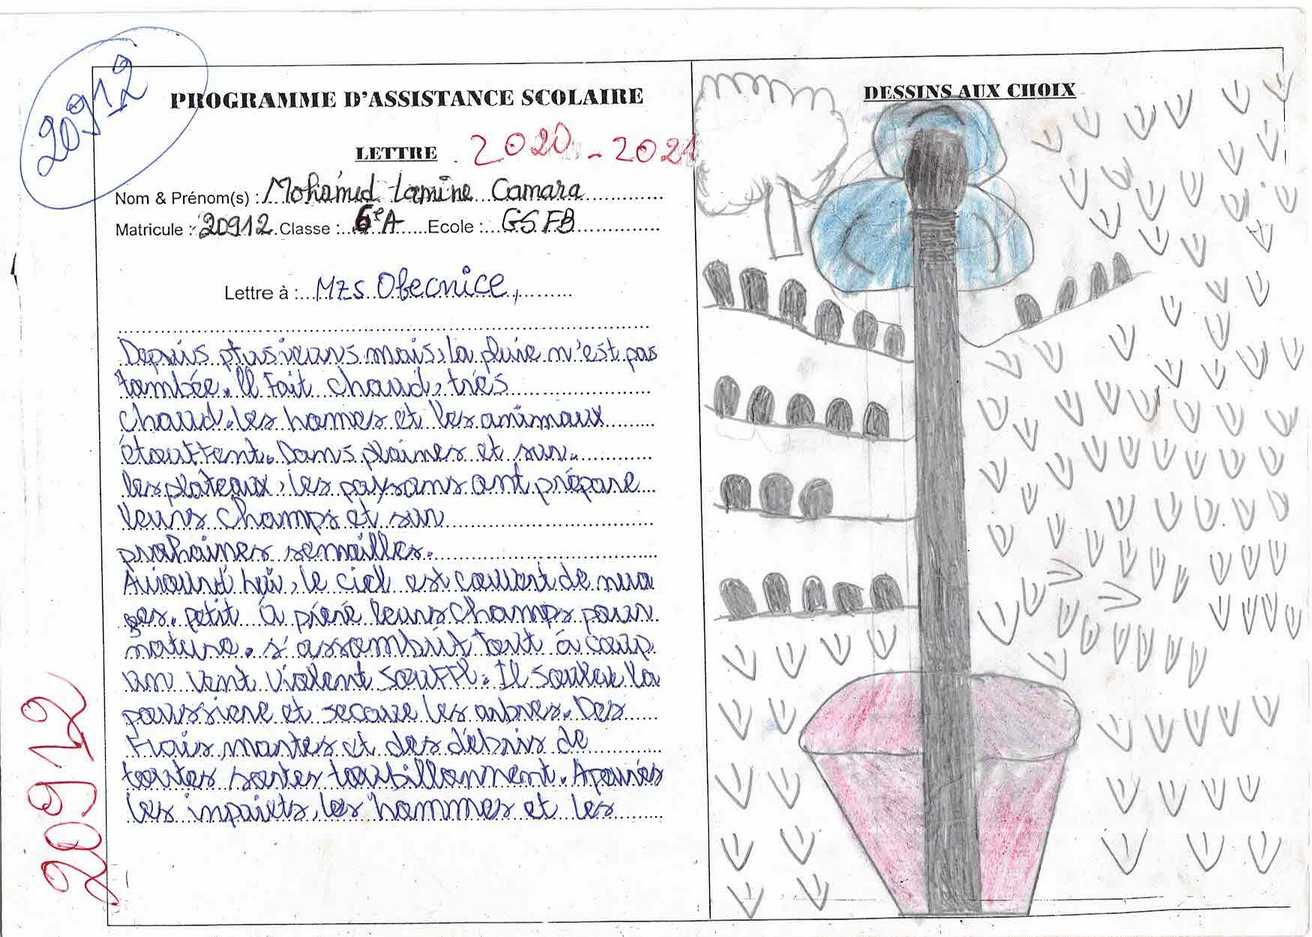 20912
PROGRAMME D'ASSISTANCE SCOLAIRE
LETTRE 2020 - 2021
Nom & Prénom(s) : Mohamed Lamine Camara
Matricule : 20912 Classe : 6e A Ecole : GSFB
Lettre à : Mzs Obecnice,
Depuis plusieurs mais, la pluie n'est pas
tambée. Il Fait chaud, très
chaud. les homes et les animaux
étouffent. Dans plaines et sur
les plateaux, les paysans ant prépare
leurs champs et sur
prohaines semailles.
Aujourd'hui, le ciel est couvert de nua
ges. petit à leurs champs pour
nature. s'assombrit tout à coup
un vent violent souffl. Il soulève la
poussiere et secoue les arbres. Des
et des débris de
toutes sortes tourbillonnent. Apeurés
les les hommes et les
20912
DESSINS AUX CHOIX